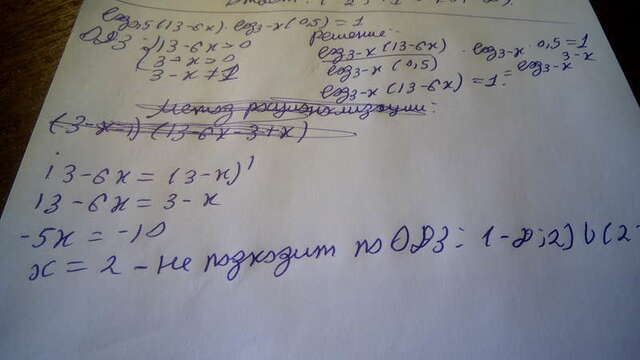 log₀,₅(13-6x) · log₃₋ₓ(0,5) = 1
ОДЗ:
{13-6x>0
3-x>0
3-x≠1
Решение:
log₃₋ₓ(13-6x) / log₃₋ₓ(0,5) · log₃₋ₓ 0,5 = 1
log₃₋ₓ(13-6x) = 1 = log₃₋ₓ 3-x
метод рационализации:
(3-x-1)(13-6x-3+x)
13-6x = (3-x)¹
13-6x = 3-x
-5x = -10
x = 2 - не подходит по ОДЗ: (-∞;2)∪(2